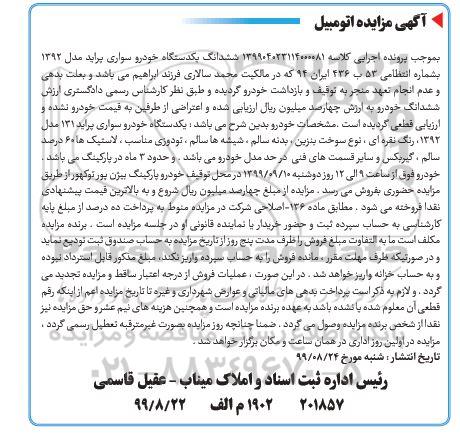 آگهی مزایده اتومبیل
بموجب پرونده اجرایی کلاسه ۱۳۹۹۰۴۰۲۳۱۱۴۰۰۰۰۸۱ ششدانگ یکدستگاه خودرو سواری پراید مدل ۱۳۹۲
بشماره انتظامی ۵۳ ب ۴۳۶ ایران ۹۴ که در مالکیت محمد سالاری فرزند ابراهیم می باشد و بعلت بدهی
و عدم انجام تعهد منجر به توقیف و بازداشت خودرو گردیده و طبق نظر کارشناس رسمی دادگستری ارزش
ششدانگ خودرو به ارزش چهارصد میلیون ریال ارزیابی شده و اعتراضی از طرفین به قیمت خودرو نشده و
ارزیابی قطعی گردیده است .مشخصات خودرو بدین شرح می باشد : یکدستگاه خودرو سواری پراید ۱۳۱ مدل
۱۳۹۲، رنگ نقره ای ، نوع سوخت بنزین ، بدنه سالم ، شیشه ها سالم ، تودوزی مناسب ، لاستیک ها ۶۰ درصد
سالم ، گیربکس و سایر قسمت های فنی در حد مدل خودرو می باشد . و حدود ۳ ماه در پارکینگ می باشد .
خودرو فوق از ساعت ۹ الی ۱۲ روز دوشنبه ۱۳۹۹/۰۹/۱۰ در محل توقیف خودرو پارکینگ بیژن پور توکهور از طریق
مزایده حضوری بفروش می رسد . مزایده از مبلغ چهارصد میلیون ریال شروع و به بالاترین قیمت پیشنهادی
نقدا فروخته می شود . مطابق ماده ۱۳۶-اصلاحی شرکت در مزایده منوط به پرداخت ده درصد از مبلغ پایه
کارشناسی به حساب سپرده ثبت و حضور خریدار یا نماینده قانونی او در جلسه مزایده است . برنده مزایده
مکلف است ما به التفاوت مبلغ فروش را ظرف مدت پنج روز از تاریخ مزایده به حساب صندوق ثبت تودیع نماید
و در صورتیکه ظرف مهلت مقرر ، مانده فروش را به حساب سپرده واریز نکند، مبلغ مذکور قابل استرداد نبوده
و به حساب خزانه واریز خواهد شد . در این صورت ، عملیات فروش از درجه اعتبار ساقط و مزایده تجدید می
گردد . و لازم به ذکر است پرداخت بدهی های مالیاتی و عوارض شهرداری و غیره تا تاریخ مزایده اعم از اینکه رقم
قطعی آن معلوم شده یا نشده باشد به عهده برنده مزایده است و همچنین هزینه های نیم عشر و حق مزایده نیز
نقدا از شخص برنده مزایده وصول می گردد . ضمنا چنانچه روز مزایده بصورت غیرمترقبه تعطیل رسمی گردد ،
مزایده در اولین روز اداری در همان ساعت و مکان برگزار خواهد شد .
تاریخ انتشار : شنبه مورخ ۹۹/۰۸/۲۴
رئیس اداره ثبت اسناد و املاک میناب - عقیل قاسمی
۲۰۱۸۵۷ ۱۹۰۲ م الف ۹۹/۸/۲۲